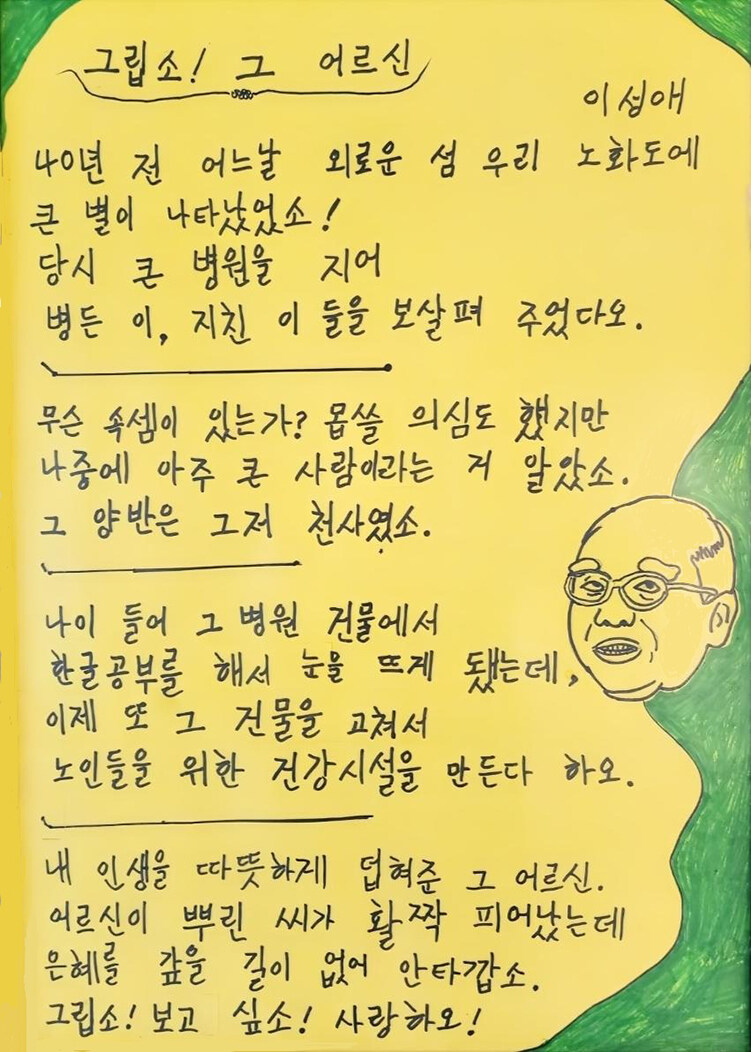 그립소! 그 어르신
이섭애
40년 전 어느날 외로운 섬 우리 노화도에
큰 별이 나타났었소!
당시 큰 병원을 지어
병든 이, 지친 이 들을 보살펴 주었다오.
무슨 속셈이 있는가? 몹쓸 의심도 했지만
나중에 아주 큰 사람이라는 거 알았소.
그 양반은 그저 천사였소.
나이 들어 그 병원 건물에서
한글공부를 해서 눈을 뜨게 됐는데,
이제 또 그 건물을 고쳐서
노인들을 위한 건강시설을 만든다 하오.
내 인생을 따뜻하게 덥혀준 그 어르신.
어르신이 뿌린 씨가 활짝 피어났는데
은혜를 갚을 길이 없어 안타깝소.
그립소! 보고 싶소! 사랑하오!